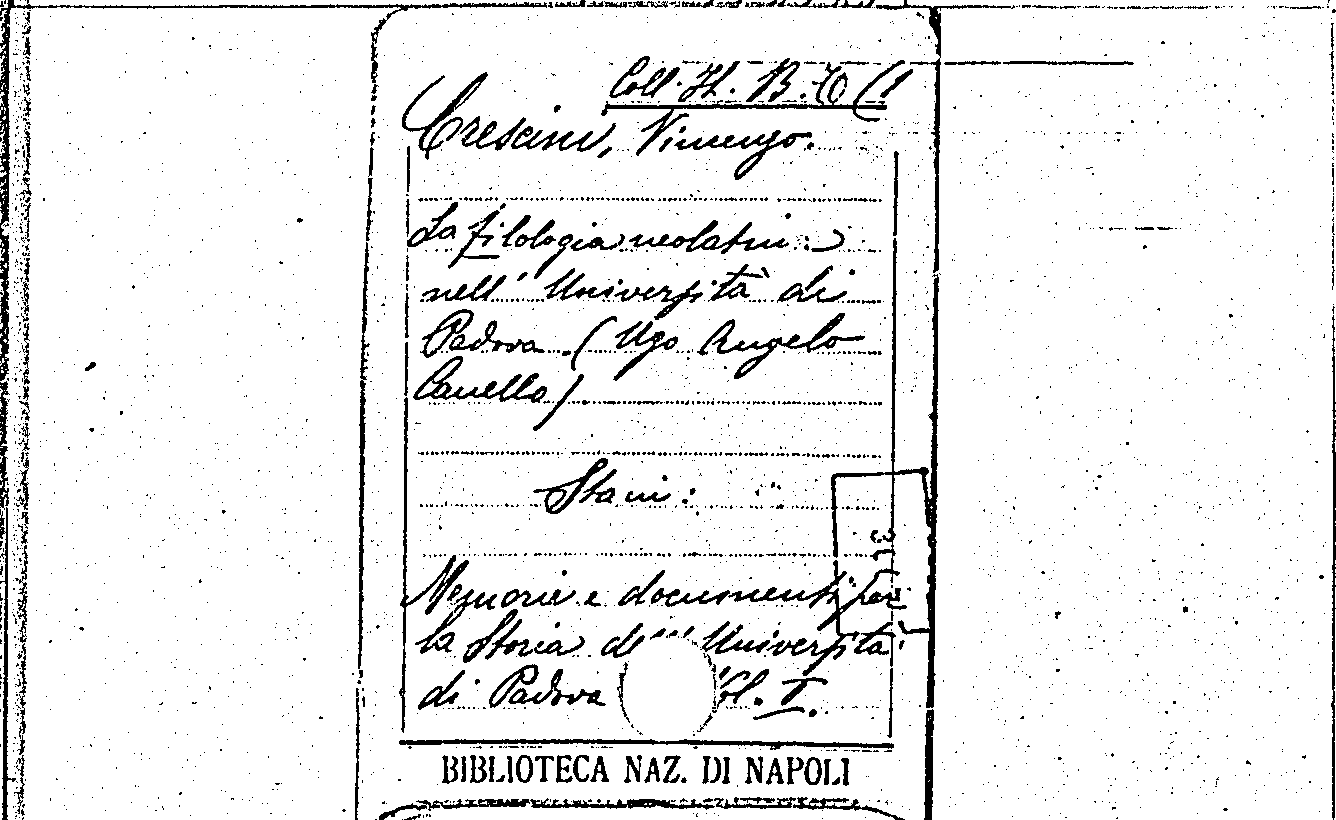 Coll. It. B. 70 (1
Crescini, Vincenzo.
La filologia neolatina
nell' Università di
Padova. (Ugo Angelo
Canello)
Stani:
Memorie e documenti per
la Storia dell' Università
di Padova Vol. I.
BIBLIOTECA NAZ. DI NAPOLI